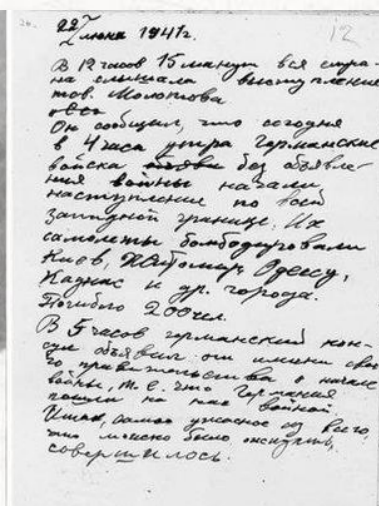 26.
12
22 июня 1941г.
В 12 часов 15 минут вся стра-
на слышала выступление
тов. Молотова
Он сообщил, что сегодня
в 4 часа утра германские
войска без объявле-
ния войны начали
наступление по всей
западной границе. Их
самолеты бомбардировали
Киев, Житомир, Одессу,
Каунас и др. города.
Погибло 200 чел.
В 5 часов германский кон-
сул объявил от имени свое-
го правительства о начале
войны, т.е. что Германия
пошла на нас войной.
Итак, самое ужасное из всего,
что можно было ожидать,
совершилось.